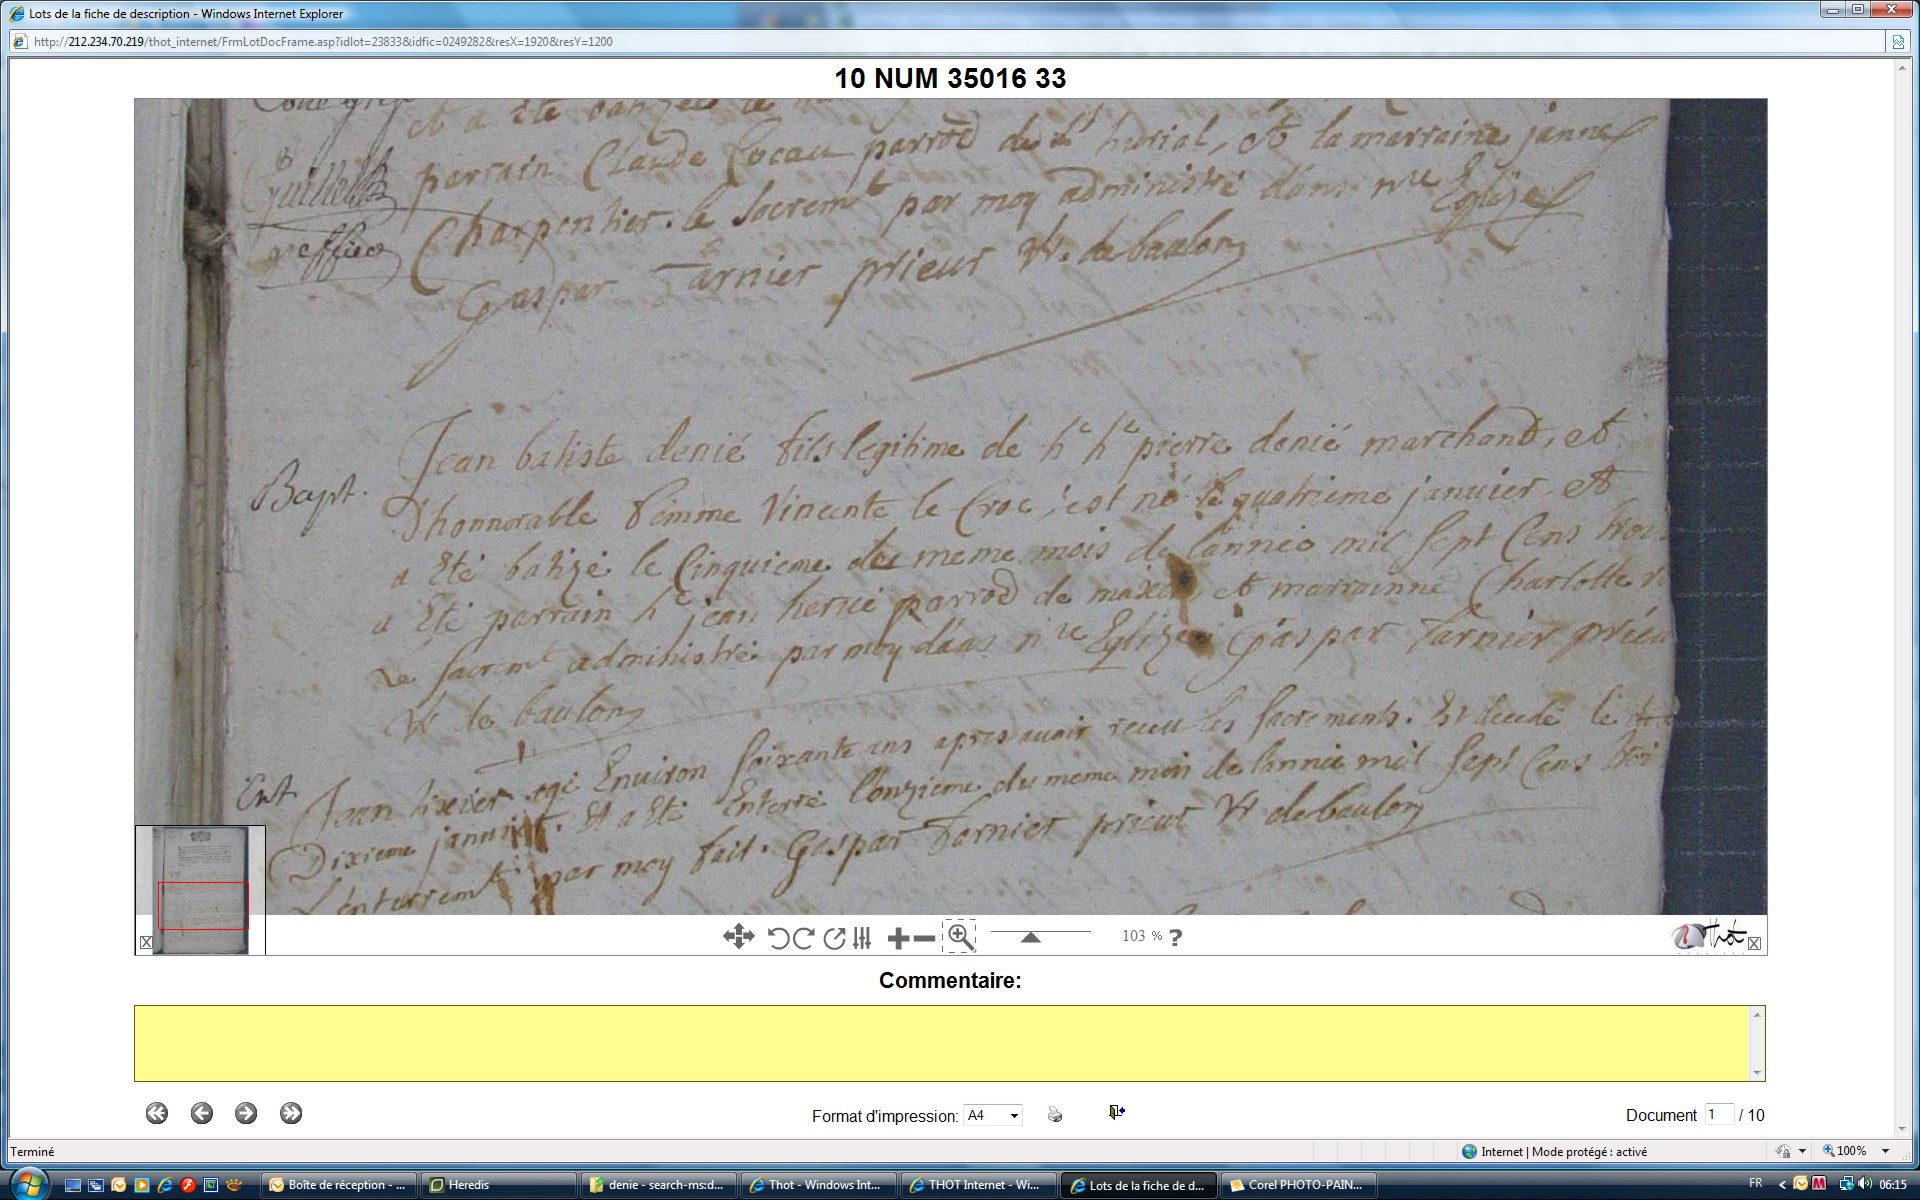 Lots de la fiche de description - Windows Internet Explorer
http://212.234.70.219/thot_internet/FrmLotDocFrame.asp?idlot=23833&idfic=0249282&resX=1920&resY=1200
10 NUM 35016 33
et a été
parrain Claude cocau parrod de st hurial, et la marraine janne
Charpentier. le sacremt par moy administré dans nre Eglize
greffier
Gaspar Tarnier prieur Vr. de baulon
Jean batiste denié fils legitime de he he pierre denié marchand, et
Bapt.
d'honnorable femme Vincente le Croc, est né le quatrieme janvier et
a Eté batizé le Cinquieme du meme mois de lannéé mil sept Cens trois
a Eté parrain he jean hervé parrod de maxen et marrainne Charlotte
Le sacrmt administré par moy dans nre Eglize Gaspar Tarnier prieu
Vr de baulon
Jean tixier agé Environ soixante ans apres avoir receu les sacrements. Est decedé le
Ent
Dixieme janvier. Et a Eté Enterré lonzieme du meme mois de lannéé mil sept Cens troi
L'enterremt par moy fait. Gaspar Tarnier prieur Vr de baulon
103 % ?
Thot
Commentaire:
Format d'impression: A4
Document 1 / 10
Terminé
Internet | Mode protégé : activé
100%
Boîte de réception - ...
Heredis
denie - search-ms:d...
Thot - Windows Int...
THOT Internet - Wi...
Lots de la fiche de d...
Corel PHOTO-PAIN...
FR
06:15